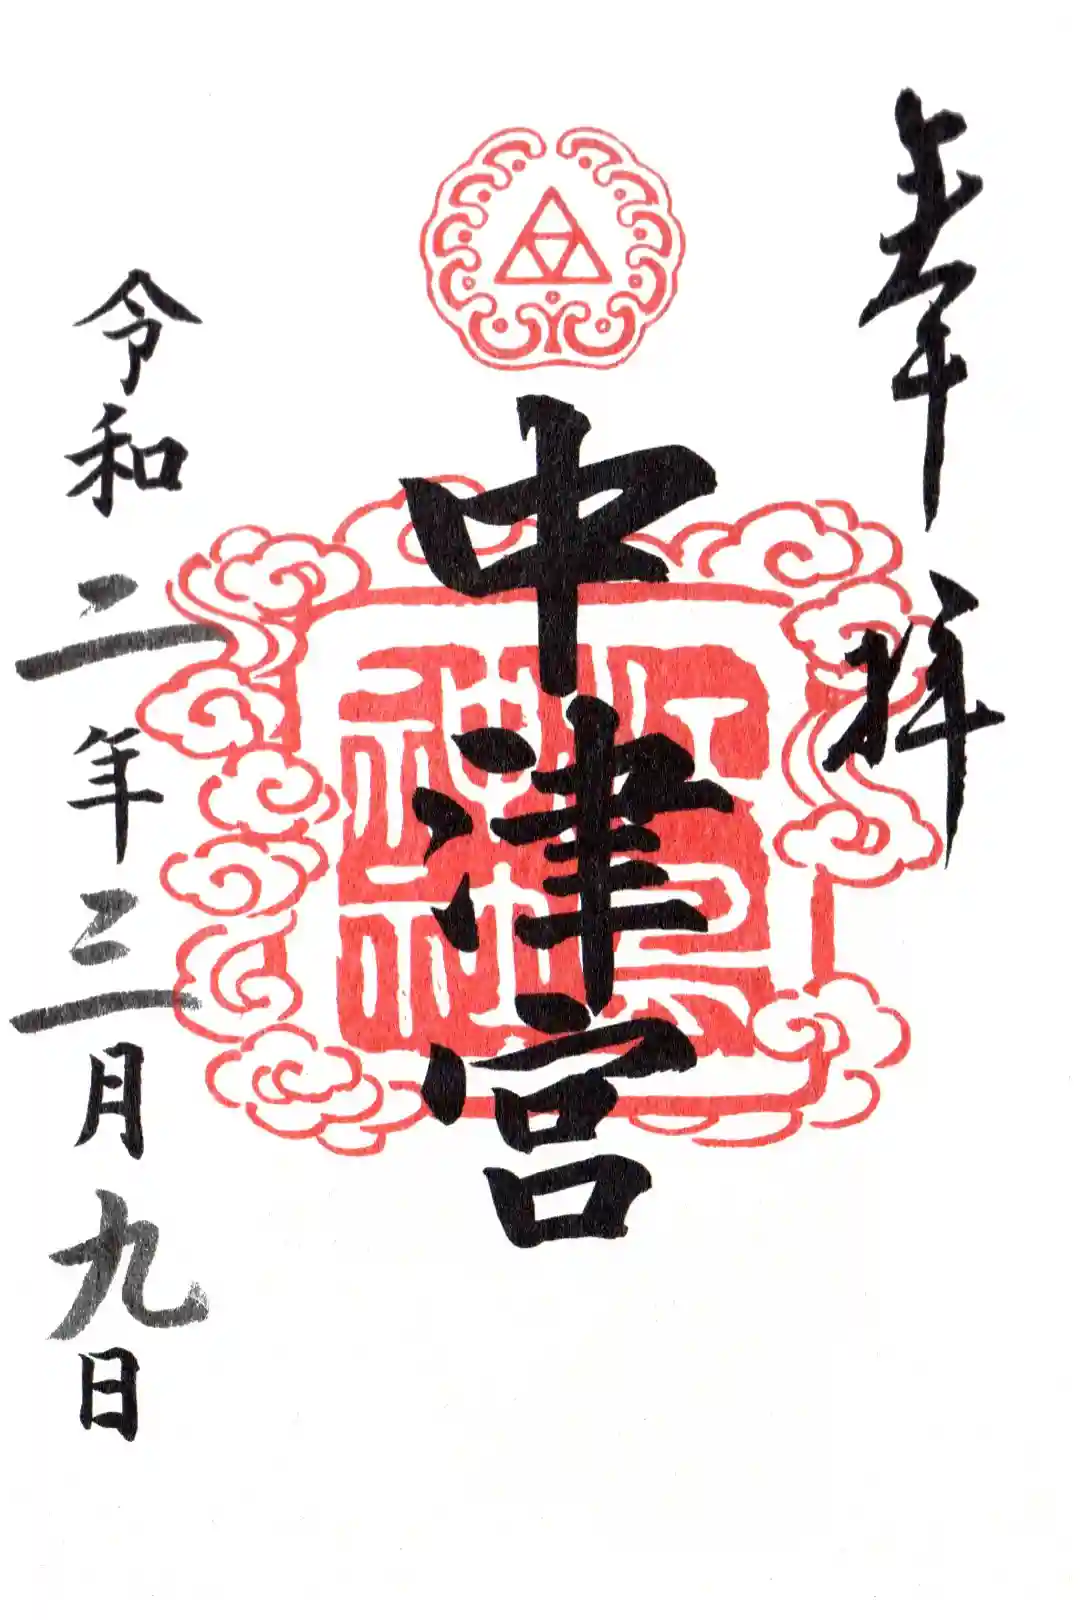 奉拝
中津宮
令和二年三月九日